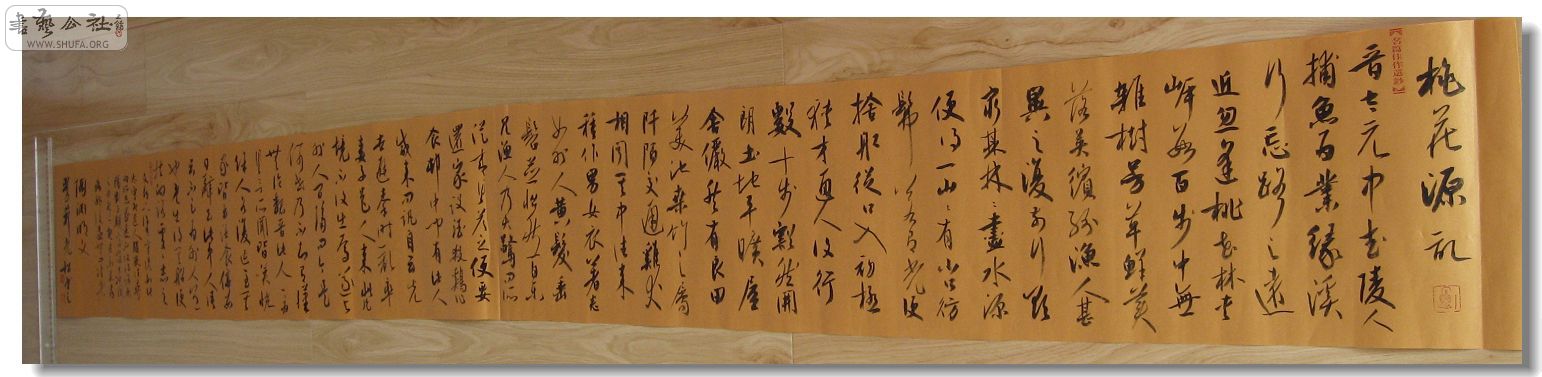 書藝公社
WWW.SHUFA.ORG
桃花源記
【名篇佳作選鈔】
晉太元中武陵人
捕魚為業緣溪
行忘路之遠
近忽逢桃花林夾
岸數百步中無
雜樹芳草鮮美
落英繽紛漁人甚
異之復前行欲
窮其林〻盡水源
便得一山〻有小口彷
彿若有光便
捨船從口入初極
狹才通人復行
數十步豁然開
朗土地平曠屋
舍儼然有良田
美池桑竹之屬
阡陌交通雞犬
相聞其中往來
種作男女衣著悉
如外人黃髮垂
髫並怡然自樂
見漁人乃大驚問所
從來具答之便要
還家設酒殺雞作
食村中聞有此人
咸來問訊自云先
世避秦時亂率
妻子邑人來此絕
境不復出焉遂與
外人間隔問今是
何世乃不知有漢
無論魏晉此人一一為
具言所聞皆嘆惋
餘人各復延至其
家皆出酒食停數
日辭去此中人語
云不足為外人道
陶淵明文